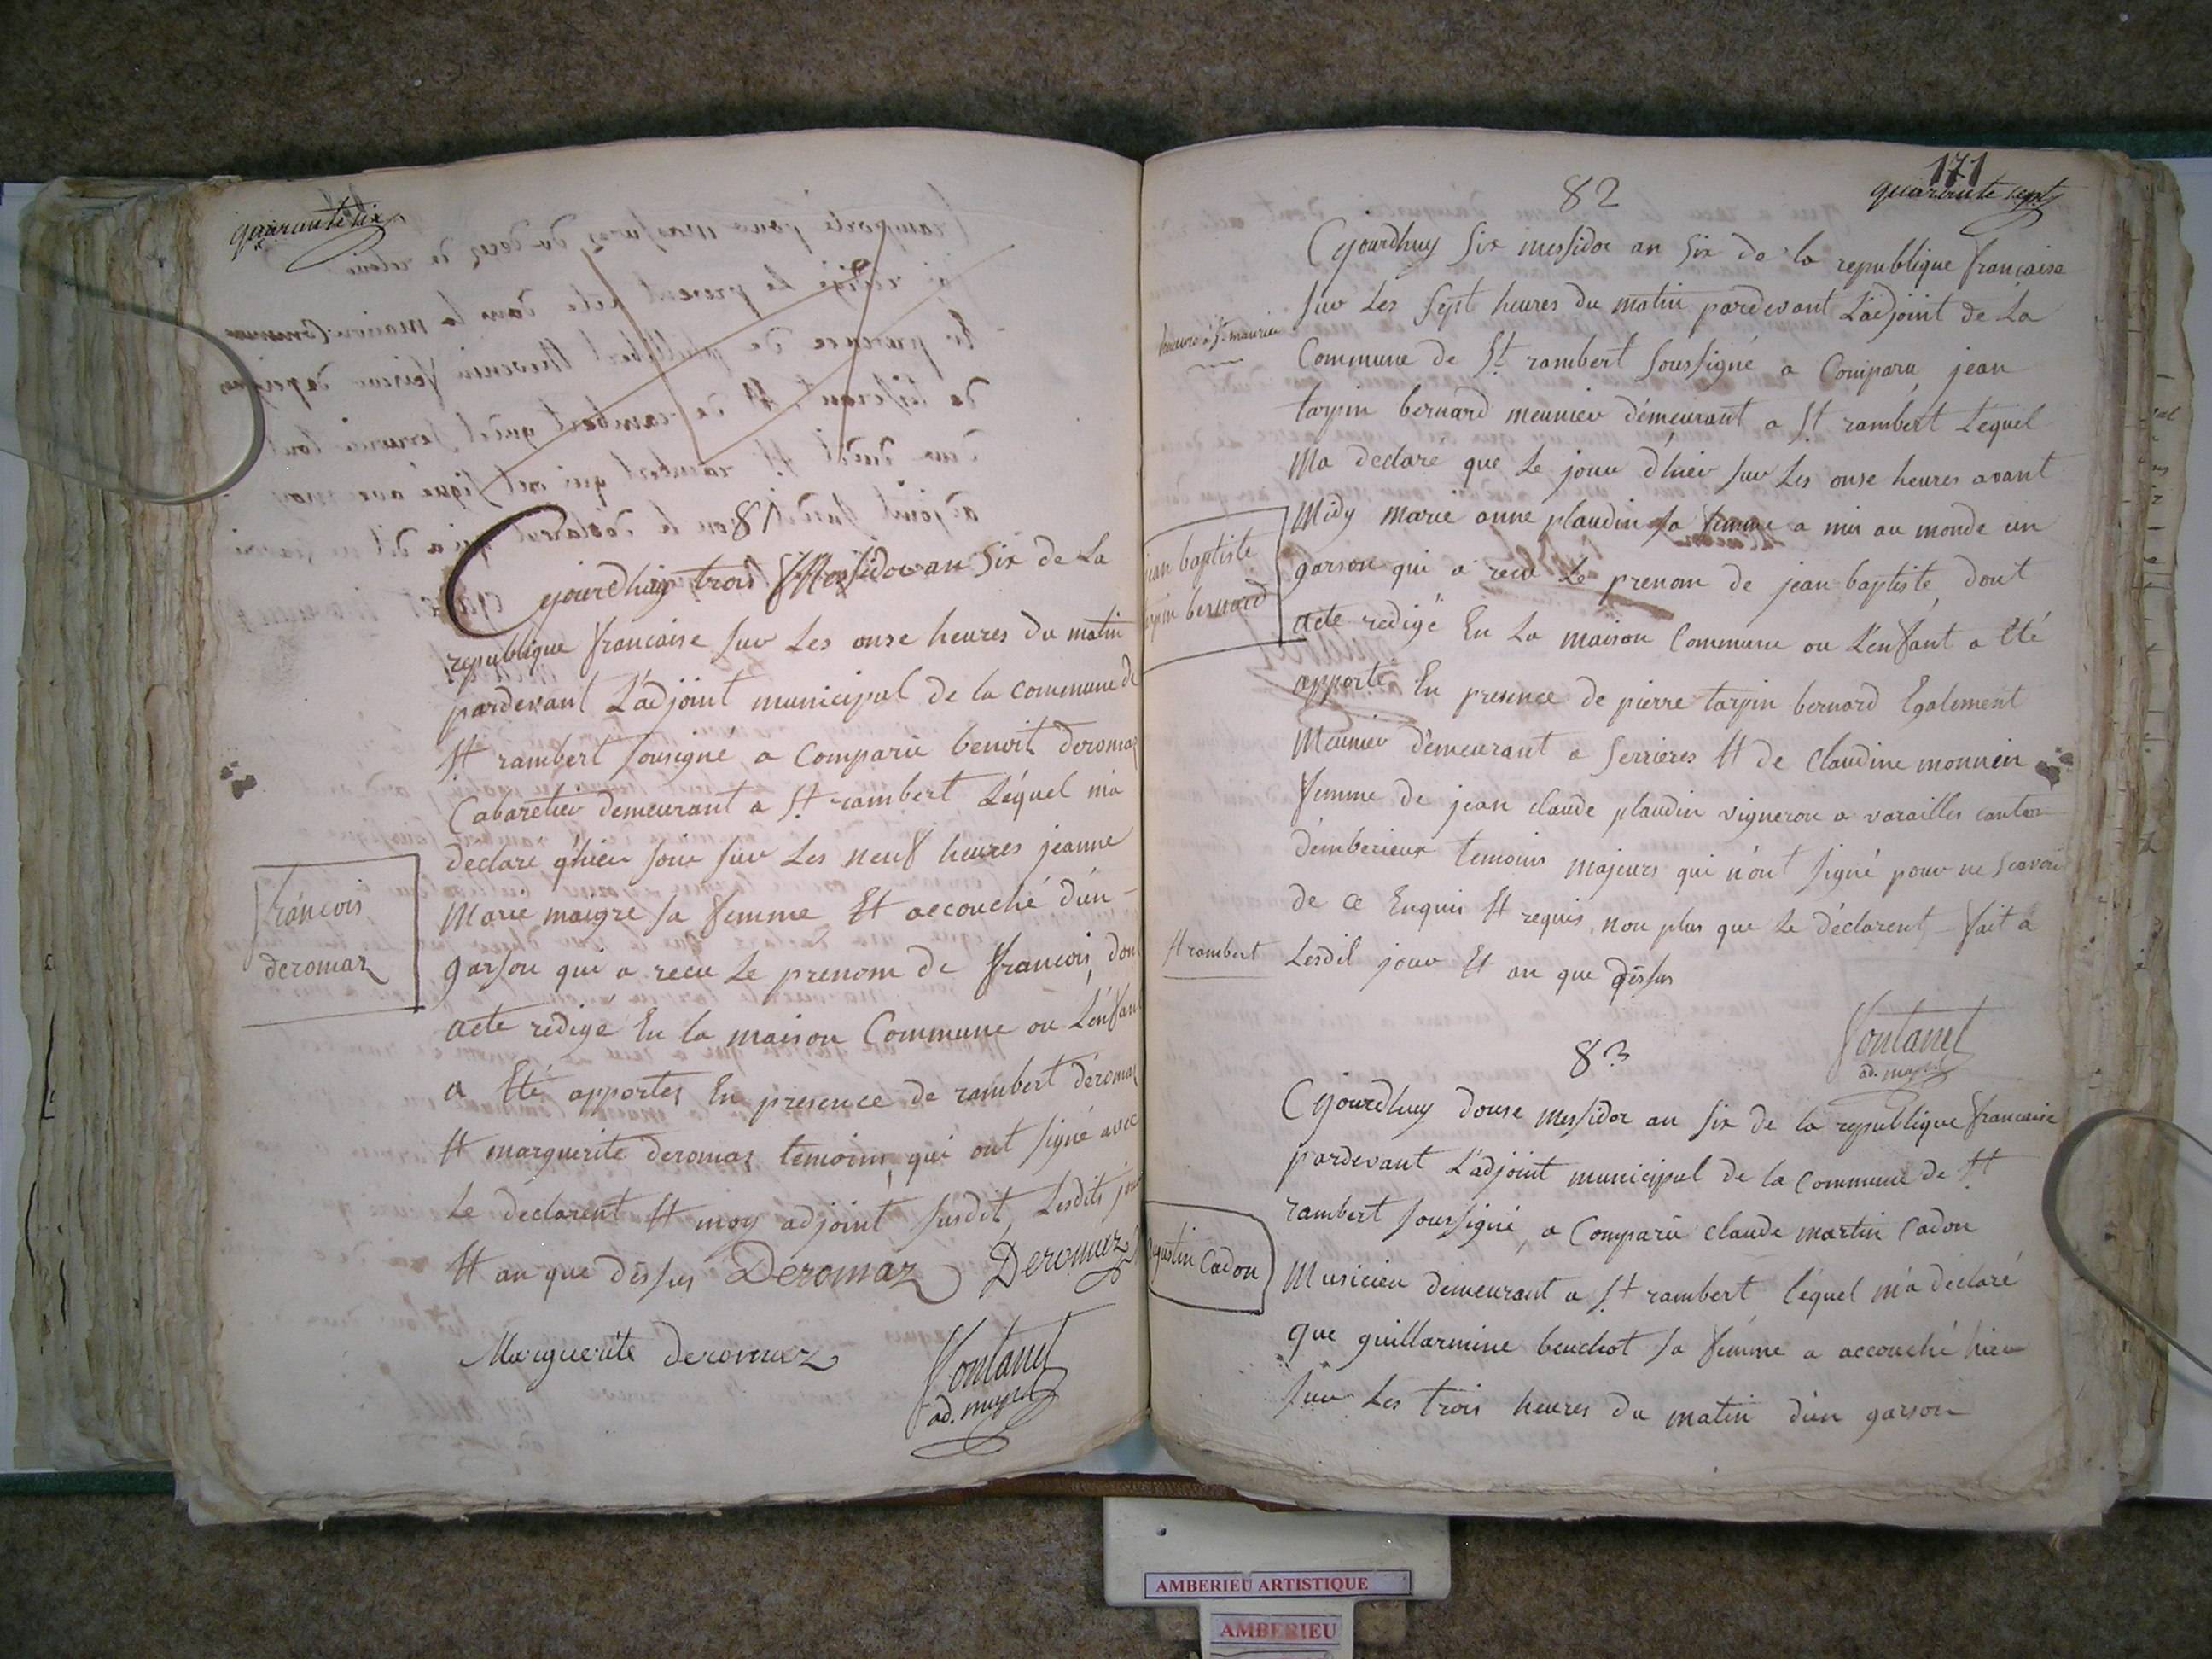 quarante six
81
Cejourdhuy trois Messidor an Six de La
republique francaise sur Les onse heures du matin
pardevant L'adjoint municipal de la commune de
St rambert sousigné a Comparu benoit deromaz
Cabaretier demeurant a St rambert Léquel m'a
declare qhier soir sur Les neuf heures jeanne
Marie maigre sa femme Et accouché d'un
garson qui a recu Le prenom de francois, dont
acte redigé En la maison Commune ou L'enfant
a Eté apportes En presence de rambert deromaz
Et marguerite deromaz temoins, qui ont signé avec
Le declarent Et moy adjoint susdit, Lesdits jour
Et an que dessus Deromaz Deromaz
Marguerite deromaz
Fontanel
ad. mupal
francois
deromaz
171
quarante sept
82
Cejourdhuy Six messidor an Six de la republique francaise
sur Les sept heures du matin pardevant L'adjoint de La
Commune de St rambert soussigné a Comparu jean
tarpin bernard meunier démeurant a St rambert Léquel
Ma declare que Le jour d'hier sur Les onse heures avant
Midy marie anne plaudin sa femme a mis au monde un
garson qui a recu Le prenom de jean baptiste, dont
acte redigé En La maison Commune ou L'enfant a Eté
apporte En presence de pierre tarpin bernard Egalement
Meunier démeurant a serrieres Et de Claudine monnein
femme de jean claude plaudin vigneron a varailles canton
démberieux temoins majeurs qui n'ont signé pour ne scavoir
de ce Enquis Et requis, non plus que Le déclarent - fait a
St rambert Lesdit jour Et an que dessus
Fontanel
ad. mupal
jean baptiste
tarpin bernard
83
Cejourdhuy douse messidor an six de la republique francaise
pardevant L'adjoint municipal de la Commune de St
rambert soussigné, a Comparu claude martin Cadon
Musicien demeurant a St rambert léquel m'a declaré
que guillarmine beuchot sa femme a accouché hier
sur Les trois heures du matin d'un garson
augustin Cadon
AMBERIEU ARTISTIQUE
AMBERIEU